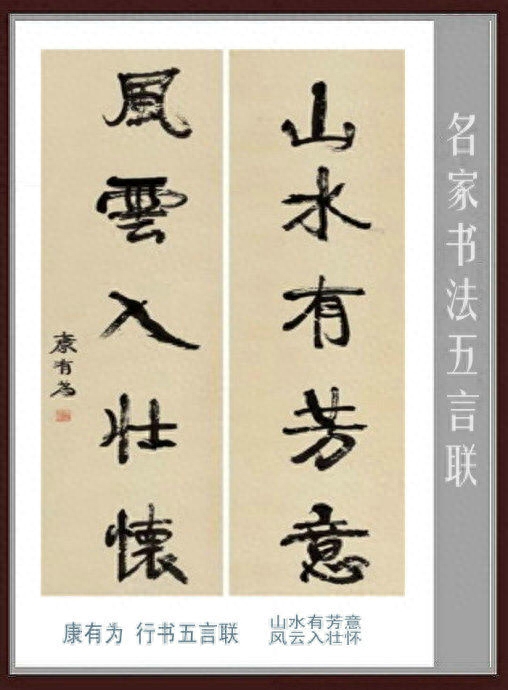 山水有芳意
風雲入壯懷
康有為
名家书法五言联
康有为 行书五言联
山水有芳意
风云入壮怀